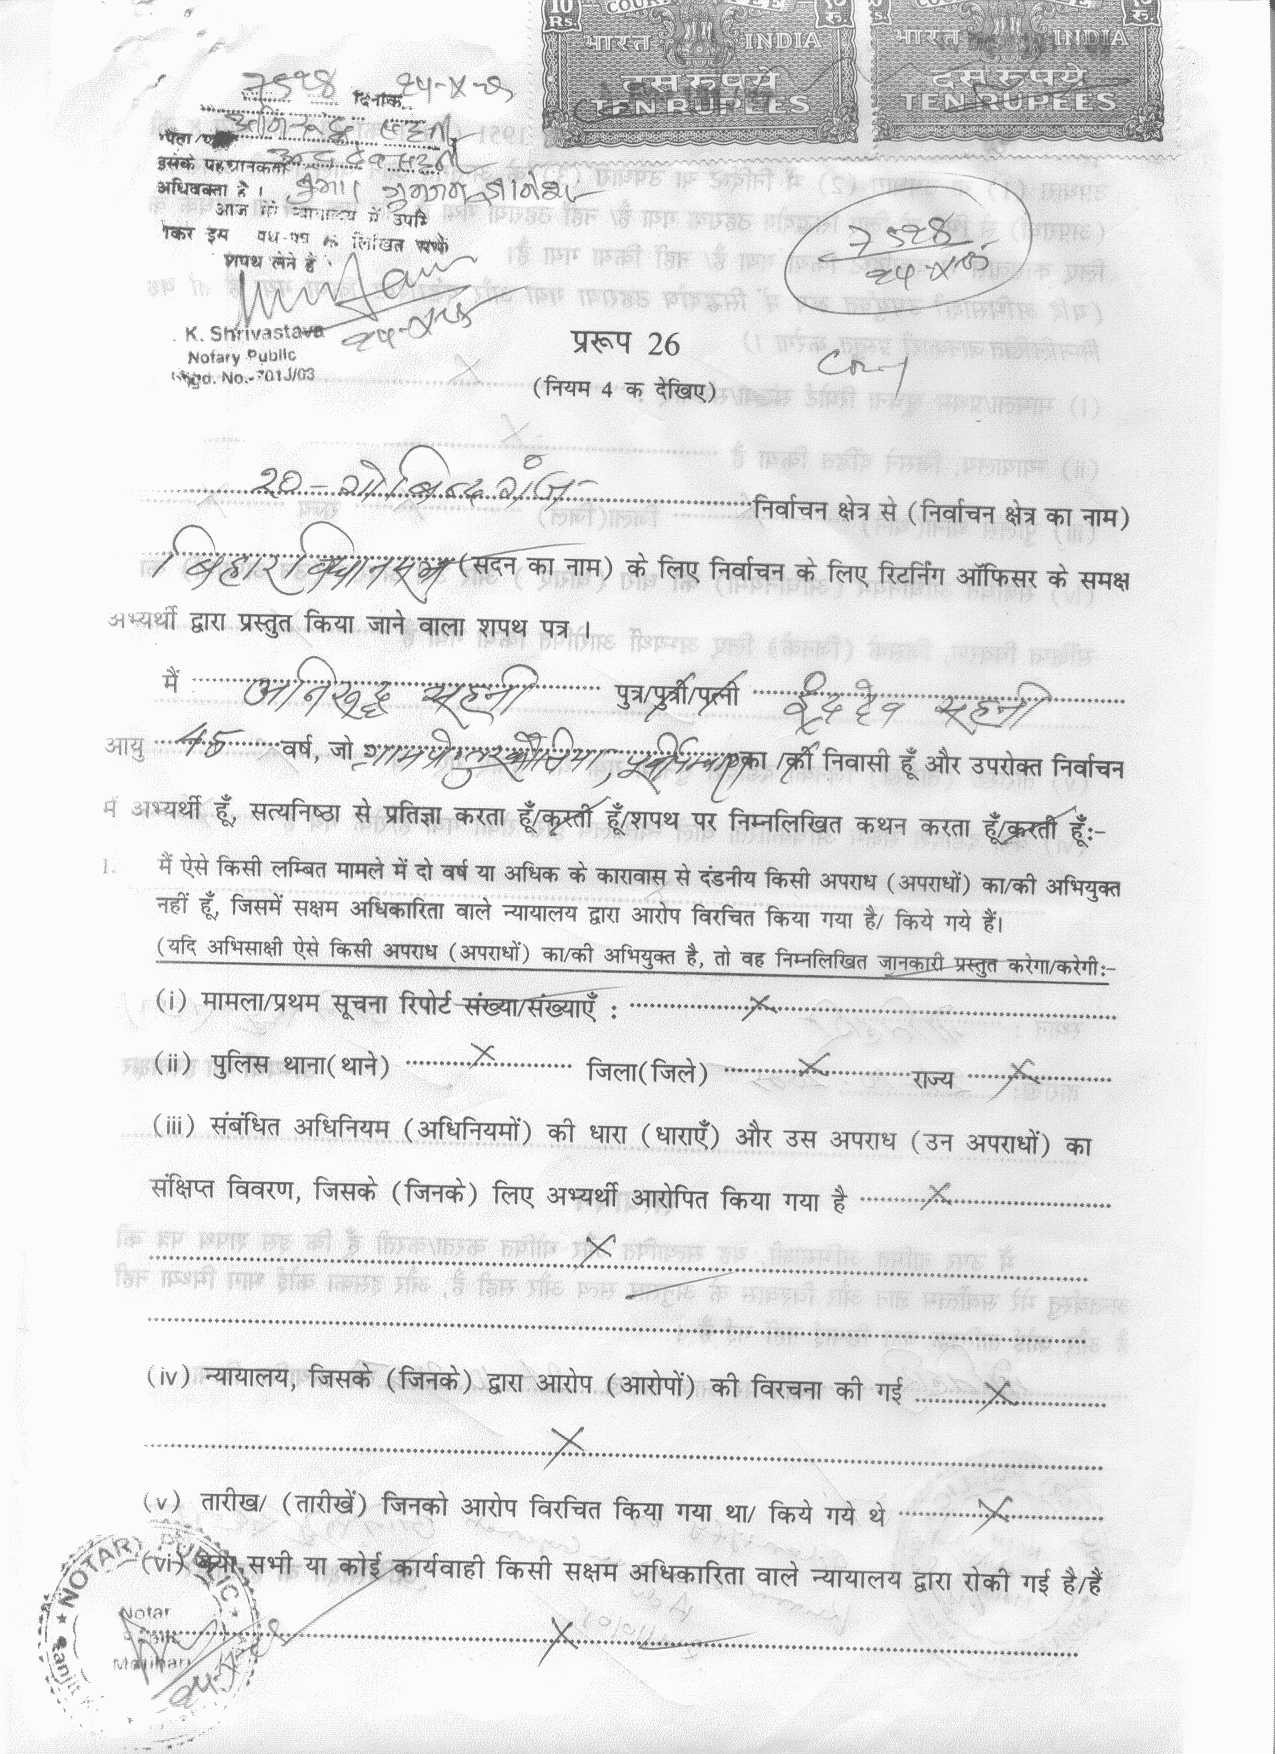 10 Rs. COURT FEE १० रु.
भारत INDIA
दस रुपये
TEN RUPEES
भारत INDIA
दस रुपये
TEN RUPEES
दिनांक
अनिरूद्ध सहनी
इसके पहचानकर्ता
अधिवक्ता है ।
आज मेरे न्यायालय में
शपथ लेते हैं
K. Shrivastava
Notary Public
Regd. No.-701J/03
प्ररूप 26
(नियम 4 क देखिए)
20-गोबिन्दगंज निर्वाचन क्षेत्र से (निर्वाचन क्षेत्र का नाम)
बिहार विधान सभा (सदन का नाम) के लिए निर्वाचन के लिए रिटर्निंग ऑफिसर के समक्ष
अभ्यर्थी द्वारा प्रस्तुत किया जाने वाला शपथ पत्र ।
मैं अनिरूद्ध सहनी पुत्र/पुत्री/पत्नी इंद्रदेव सहनी
आयु 45 वर्ष, जो का /की निवासी हूँ और उपरोक्त निर्वाचन
में अभ्यर्थी हूँ, सत्यनिष्ठा से प्रतिज्ञा करता हूँ/करती हूँ/शपथ पर निम्नलिखित कथन करता हूँ/करती हूँ:-
1. मैं ऐसे किसी लम्बित मामले में दो वर्ष या अधिक के कारावास से दंडनीय किसी अपराध (अपराधों) का/की अभियुक्त
नहीं हूँ, जिसमें सक्षम अधिकारिता वाले न्यायालय द्वारा आरोप विरचित किया गया है/ किये गये हैं।
(यदि अभिसाक्षी ऐसे किसी अपराध (अपराधों) का/की अभियुक्त है, तो वह निम्नलिखित जानकारी प्रस्तुत करेगा/करेगी:-
(i) मामला/प्रथम सूचना रिपोर्ट संख्या/संख्याएँ : X
(ii) पुलिस थाना(थाने) X जिला(जिले) X राज्य X
(iii) संबंधित अधिनियम (अधिनियमों) की धारा (धाराएँ) और उस अपराध (उन अपराधों) का
संक्षिप्त विवरण, जिसके (जिनके) लिए अभ्यर्थी आरोपित किया गया है X
X
(iv) न्यायालय, जिसके (जिनके) द्वारा आरोप (आरोपों) की विरचना की गई X
X
(v) तारीख/ (तारीखें) जिनको आरोप विरचित किया गया था/ किये गये थे X
(vi) क्या सभी या कोई कार्यवाही किसी सक्षम अधिकारिता वाले न्यायालय द्वारा रोकी गई है/हैं
X
NOTARY PUBLIC